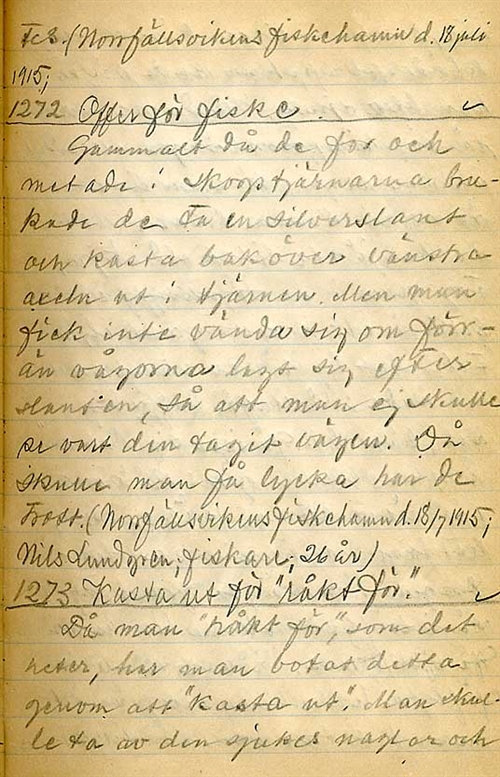 (Norrfällsvikens fiskehamn d. 18 juli
1915;
1272 Offer för fiske
Gammalt då de for och
metade i Skoptjärnarna bru-
kade de ta en silverslant
och kasta bak över vänstra
axeln ut i tjärnen. Men man
fick inte vända sig om förr-
än vågorna lagt sig efter
slanten, så att man ej skulle
se vart den tagit vägen. Då
skulle man få lycka har de
trott. (Norrfällsvikens fiskehamn d. 18/7 1915;
Nils Lundgren, fiskare, 26 år)
1273 Kasta ut för "råkt för."
Då man "råkt för", som det
heter, har man botat detta
genom att "kasta ut". Man skul-
le ta av den sjukes naglar och